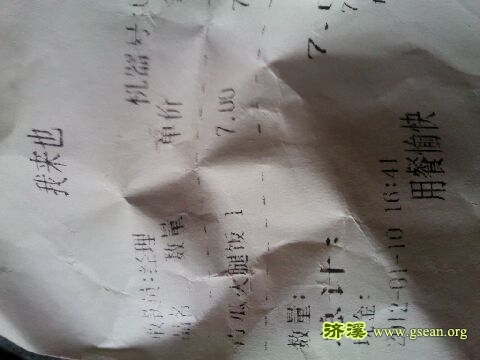 我来也
收银员:经理 机器号:
品名 数量 单价
火腿饭 1 7.00
数量:
总计: 7.
现金:
12-01-10 16:41
用餐愉快
济溪 www.gsean.org